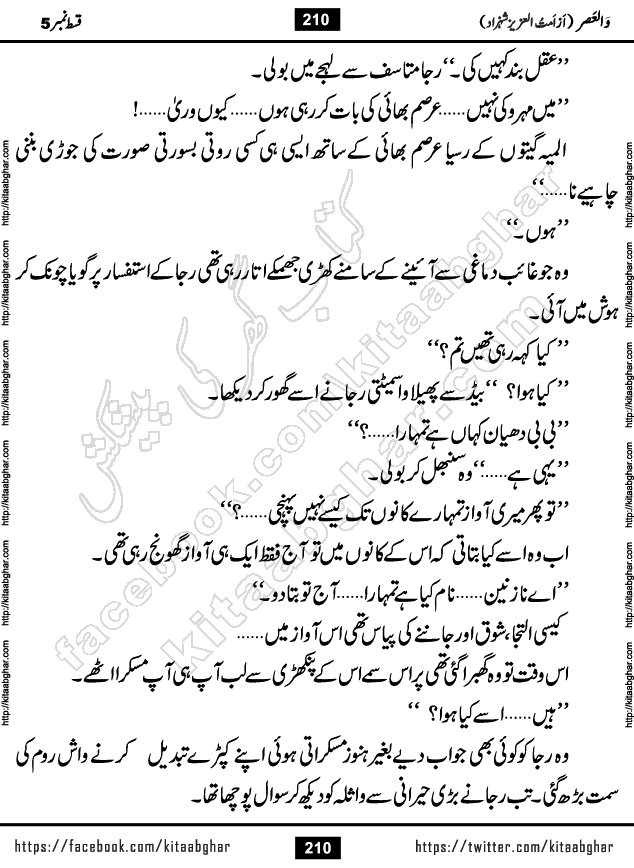 وَالعَصر (از اَمتُ العزیز شہزاد)
210
قسط نمبر 5
’’عقل بند کہیں کی۔‘‘ رجا متاسف سے لہجے میں بولی۔
’’میں مہرو کی نہیں……عرصم بھائی کی بات کر رہی ہوں……کیوں وریٰ……!
المیہ گیتوں کے رسیا عرصم بھائی کے ساتھ ایسی ہی کسی روتی بسورتی صورت کی جوڑی بننی
چاہیے نا……‘‘
’’ہوں۔‘‘
وہ جو غائب دماغی سے آئینے کے سامنے کھڑی جھمکے اتار رہی تھی رجا کے استفسار پر گویا چونک کر
ہوش میں آئی۔
’’کیا کہہ رہی تھیں تم؟‘‘
’’کیا ہوا؟‘‘ بیڈ سے پھیلاوا سمیٹتی رجا نے اسے گھور کر دیکھا۔
’’بی بی دھیان کہاں ہے تمہارا……؟‘‘
’’یہی ہے……‘‘ وہ سنبھل کر بولی۔
’’تو پھر میری آواز تمہارے کانوں تک کیسے نہیں پہنچی……؟‘‘
اب وہ اسے کیا بتاتی کہ اس کے کانوں میں تو آج فقط ایک ہی آواز گھونج رہی تھی۔
’’اے نازنین……نام کیا ہے تمہارا……آج تو بتا دو۔‘‘
کیسی التجا، شوق اور جاننے کی پیاس تھی اس آواز میں……
اس وقت تو وہ گھبرا گئی تھی پر اس سمے اس کے پنکھڑی سے لب آپ ہی آپ مسکرا اٹھے۔
’’ہیں……اسے کیا ہوا؟‘‘
وہ رجا کو کوئی بھی جواب دیے بغیر ہنوز مسکراتی ہوئی اپنے کپڑے تبدیل کرنے واش روم کی
سمت بڑھ گئی۔ تب رجا نے بڑی حیرانی سے واثلہ کو دیکھ کر سوال پوچھا تھا۔
http://kitaabghar.com
http://kitaabghar.com
http://kitaabghar.com
http://kitaabghar.com
http://kitaabghar.com
http://kitaabghar.com
http://kitaabghar.com
http://kitaabghar.com
http://kitaabghar.com
http://kitaabghar.com
http://kitaabghar.com
http://kitaabghar.com
کتاب گھر کی پیشکش
facebook.com/kitaabghar
kitaabghar.com
https://facebook.com/kitaabghar
210
https://twitter.com/kitaabghar